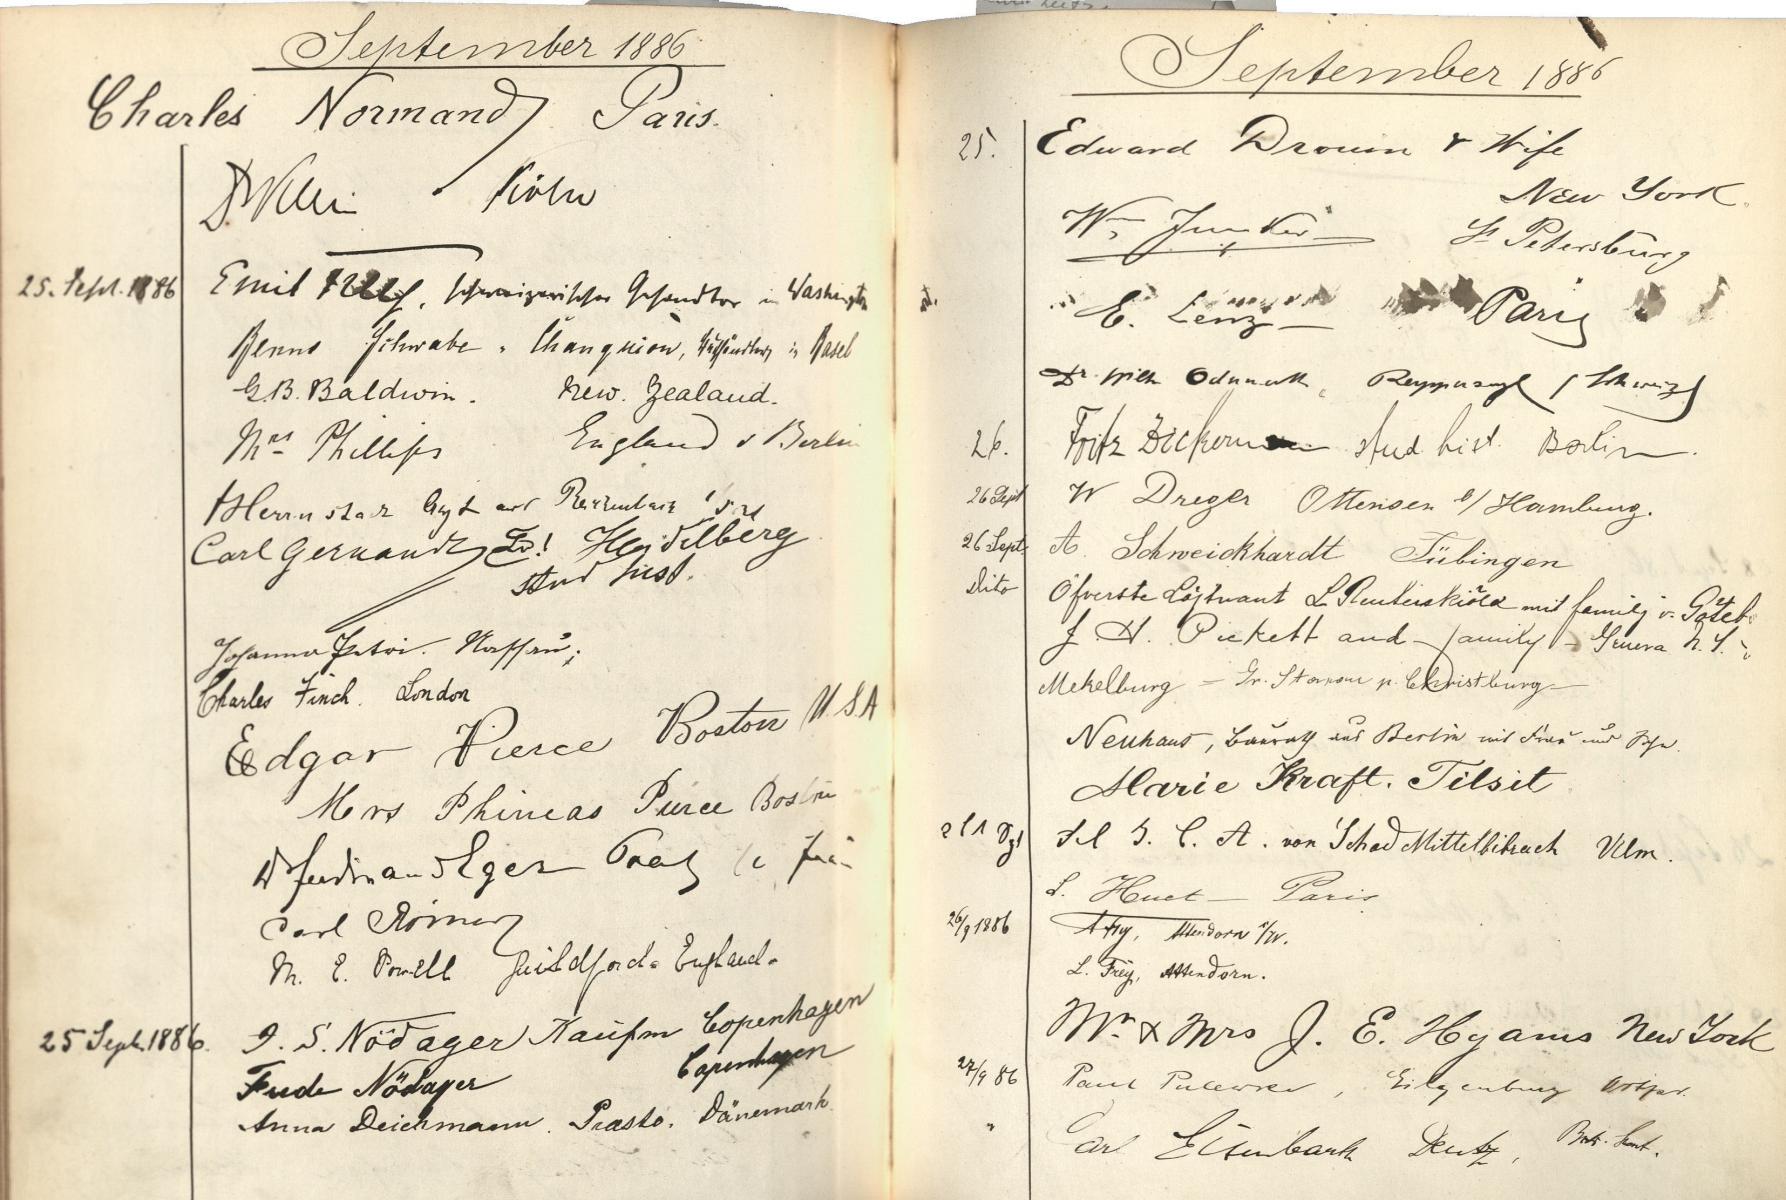 September 1886
Charles Normand Paris.
Dr Klein Köln
25. Sept. 1886 Emil Frey, schweizerischer Gesandter in Washington
Benno Schwabe Buchhandlung in Basel
G.B. Baldwin. New. Zealand.
Mrs Phillips England & Berlin
Carl Gernandt Heidelberg
stud
Johanna
Charles Finch. London
Edgar Pierce Boston U.S.A
Mrs Phineas Pierce Boston
Dr Ferdinand Eger
Carl Römer
M. E. Powell Guildford England
25 Sept. 1886. J. S. Nödager Kaufm Copenhagen
Nödager Copenhagen
Anna Deichmann. Prasto. Dänemark
September 1886
25. Edward Drouin & Wife
New York.
Wm Junker St Petersburg
E. Lenz Paris
Dr. Wilh
26. Fritz stud hist. Berlin.
26 Sept W Dreger Ottensen b/Hamburg.
26 Sept. A. Schweickhardt Tübingen
dito Öfverste Löjtnant L Reuterskiöld mit familj v.
J H. Pickett and family Geneva N.Y.
Mekelburg Gr. p. Christburg
Neuhaus, Baurath aus Berlin mit Frau und
Marie Kraft. Tilsit
von Schad Mittelbiberach Ulm.
L. Huet Paris
26/9 1886 A Frey, Attendorn i/W.
L. Frey, Attendorn.
Mr. & Mrs J. E. Hyams New York
27/9 86 Paul
" Carl Eisenbarth Deutz,